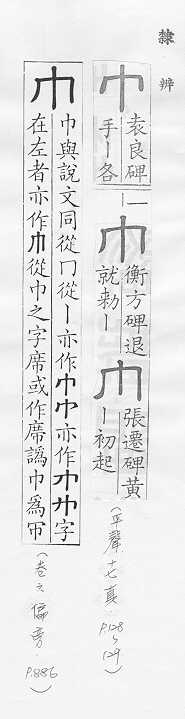 隸辨
巾
袁良碑
手丨各
一
巾
衡方碑退
就勑丨
巾
張遷碑黃
丨初起
(平聲十七真.
P.128
~
129)
巾
巾與說文同從冂從丨亦作巾巾亦作巾巾字
在左者亦作巾從巾之字席或作席譌巾爲帀
(卷六偏旁.
P.886)